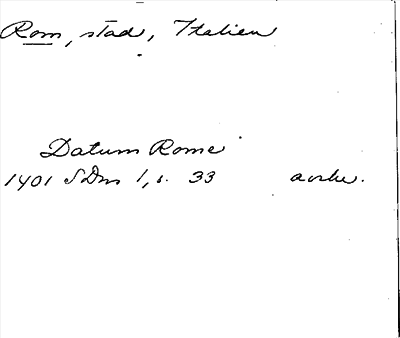 Rom, stad, Italien
Datum Rome
1401 SDns 1, s. 33 avskr.